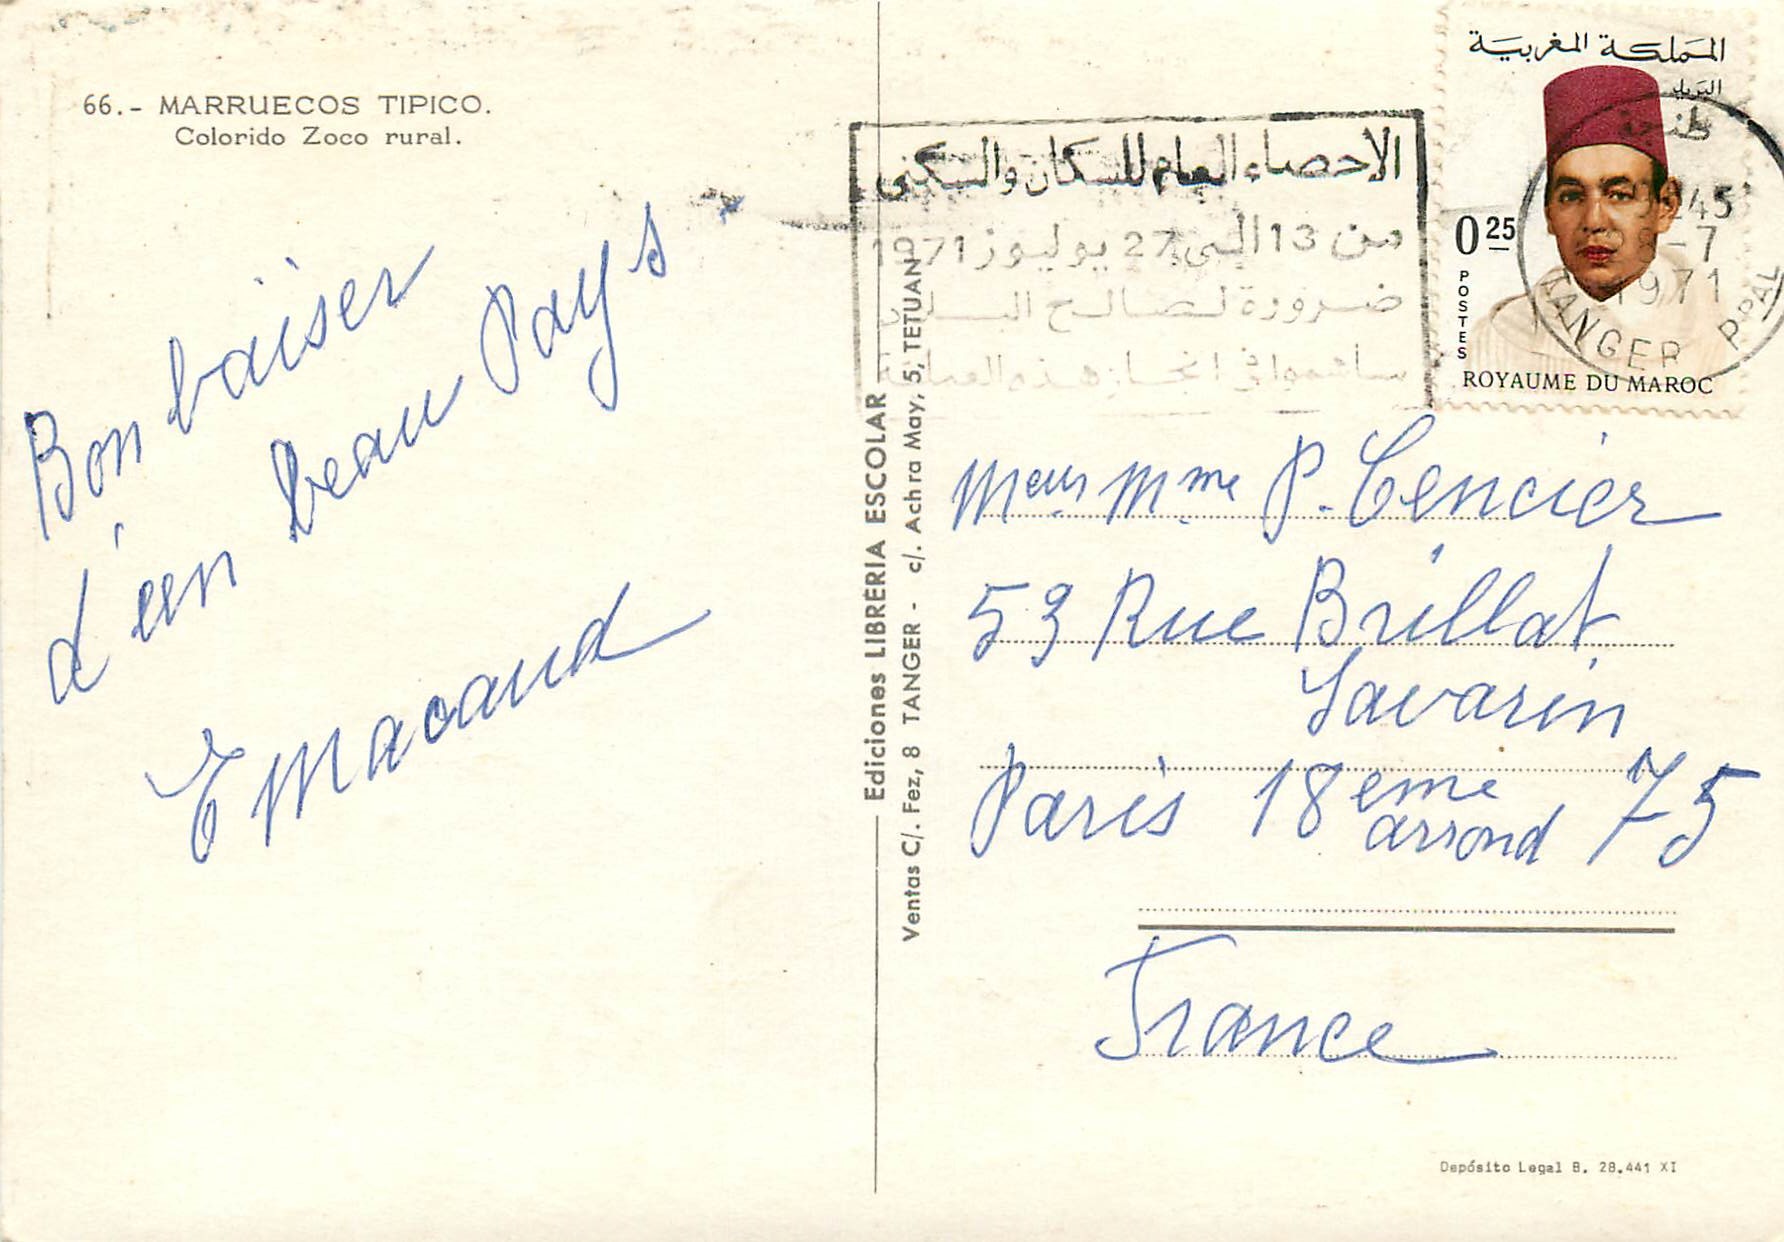 66.- MARRUECOS TIPICO.
Colorido Zoco rural.
Bon baiser
d'un beau Pays
E Macaud
Ediciones LIBRERIA ESCOLAR
Ventas C/. Fez, 8 TANGER - c/. Achra May, 5, TETUAN
الاحصاء العام للسكان والسكنى
من 13 الى 27 يوليوز 1971
ضرورة لصالح البلاد
ساهموا في انجاز هذه العملية
المملكة المغربية
البريد
0.25
POSTES
ROYAUME DU MAROC
طنجة
45
8-7
1971
TANGER P.PAL
Meur Mme P. Cencier
53 Rue Brillat
Savarin
Paris 18eme arrond 75
France
Depósito Legal B. 28.441 XI